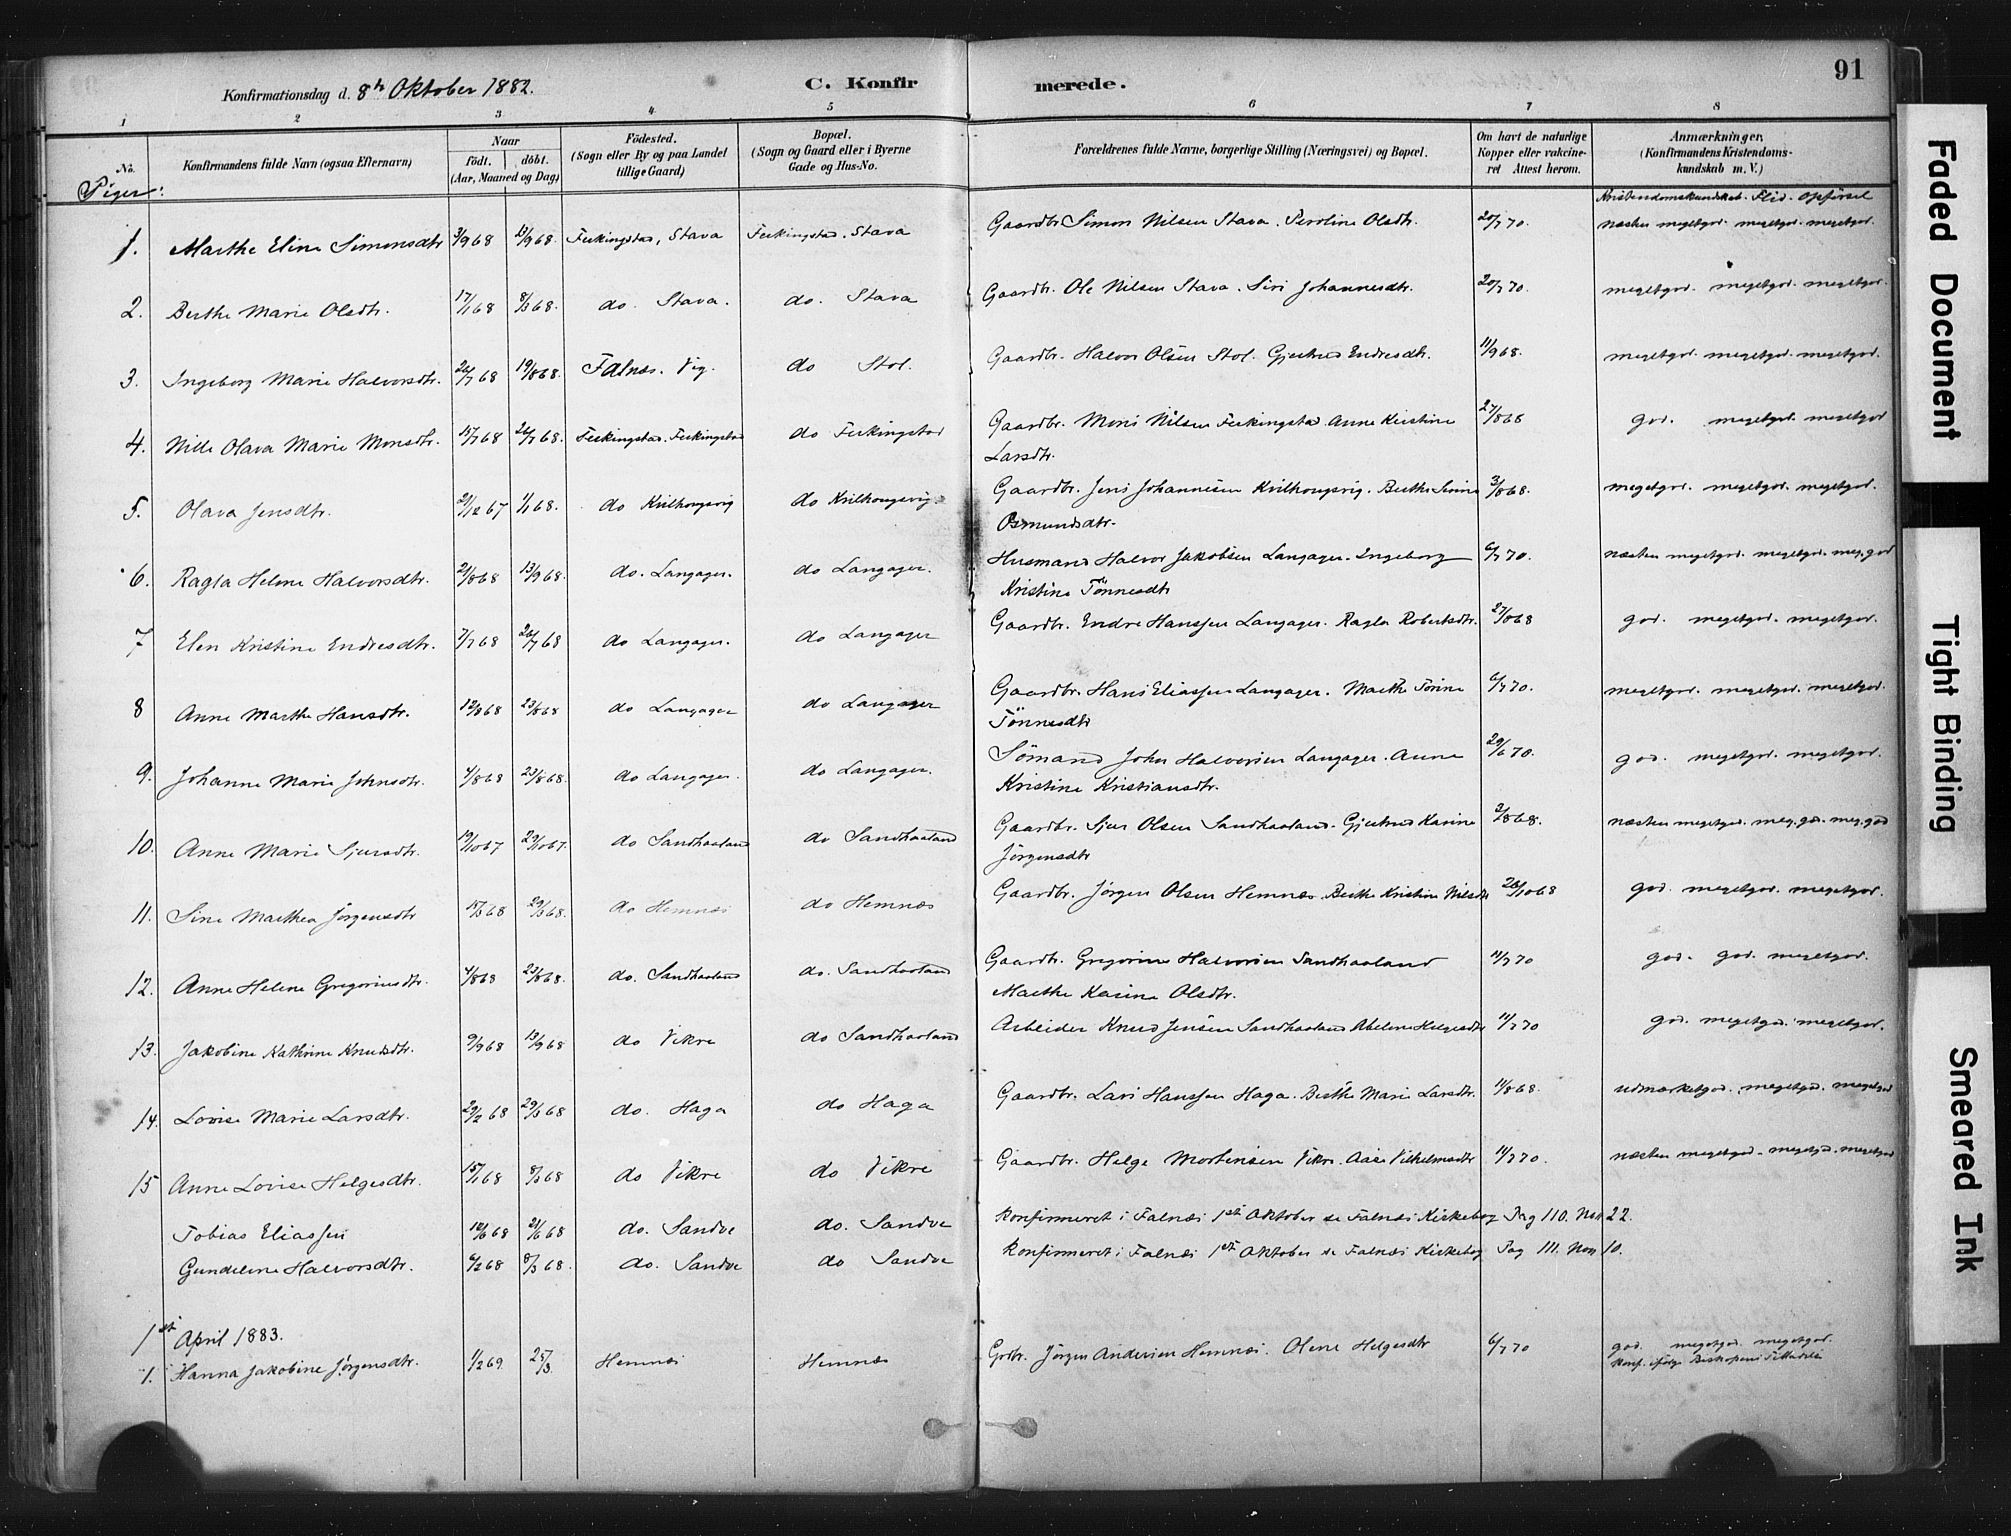 Konfirmationsdag d. 8de Oktober 1882.
C. Konfirmerede.
91
1 2 3 4 5 6 7 8
No.
Konfirmandens fulde Navn (ogsaa Efternavn)
Naar
födt. döbt.
(Aar, Maaned og Dag)
Födested.
(Sogn eller By og paa Landet
tillige Gaard)
Bopæl.
(Sogn og Gaard eller i Byerne
Gade og Hus-No.
Forældrenes fulde Navne, borgerlige Stilling (Næringsvei) og Bopæl.
Om havt de naturlige
Kopper eller vakcine-
ret Attest herom.
Anmærkninger,
(Konfirmandens Kristendoms-
kundskab m. V.)
Piger:
Kristendomskundskab. Flid. Opførsel
1. Marthe Eline Simonsdtr 3/9 68 13/9 68. Ferkingstad, Stava Ferkingstad. Stava Gaardbr Simon Nilsen Stava. Peroline Olsdtr. 20/7 70. næsten megetgod. megetgod. megetgod.
2. Berthe Marie Olsdtr. 17/1 68 8/3 68. do. Stava. do. Stava Gaardbr. Ole Nilsen Stava. Siri Johannesdtr. 20/7 70. megetgod. megetgod. megetgod.
3. Ingeborg Marie Halvorsdtr. 26/7 68 19/8 68. Falnæs. Vig. do Stol. Gaardbr. Halvor Olsen Stol. Gjertrud Endresdtr. 11/9 68. megetgod. megetgod. megetgod.
4. Nille Olava Marie Monsdtr. 15/7 68 26/7 68. Ferkingstad. Ferkingstad do Ferkingstad Gaardbr. Mons Nilsen Ferkingstad. Anne Kristine
Larsdtr. 27/8 68 god. megetgod. megetgod
5. Olava Jensdtr. 21/12 67 1/1 68. do Kvilhougsvig do Kvilhougsvig. Gaardbr. Jens Johannesen Kvilhougsvig. Berthe Serine
Osmundsdtr. 3/8 68. megetgod. megetgod. megetgod.
6. Ragla Helene Halvorsdtr. 21/8 68 13/9 68. do. Langager. do Langager. Husmand Halvor Jakobsen Langager. Ingeborg
Kristine Tönnesdtr 6/7 70. næsten megetgod. megetgod. meg. god
7 Elen Kristine Endresdtr. 7/7 68 26/7 68 do Langager. do Langager Gaardbr. Endre Hanssen Langager. Ragla Robertsdtr. 27/8 68 god. megetgod. megetgod.
8 Anne Marthe Hansdtr. 12/8 68 23/8 68 do Langager do Langager Gaardbr. Hans Eliassen Langager. Marthe Torine
Tönnesdtr 6/7 70. megetgod. megetgod. megetgod.
9. Johanne Marie Johnsdtr. 4/8 68 23/8 68. do Langager. do Langager. Sömand John Halvorsen Langager. Anne
Kristine Kristiansdtr. 29/6 70. god. megetgod. megetgod.
10. Anne Marie Sjursdtr. 19/10 67 27/10 67. do Sandhaaland do Sandhaaland Gaardbr. Sjur Olsen Sandhaaland. Gjertrud Karine
Jörgensdtr 3/8 68. næsten megetgod. meg. god. meg. god
11. Sine Marthea Jörgensdtr 15/3 68 29/3 68. do Hemnæs do Hemnæs Gaardbr. Jörgen Olsen Hemnæs. Berthe Kristine Nilsdtr 26/10 68 god. megetgod. megetgod.
12. Anne Helene Gregoriusdtr. 4/8 68 23/8 68. do. Sandhaaland do. Sandhaaland Gaardbr. Gregorius Halvorsen Sandhaaland
Marthe Karine Olsdtr. 11/7 70 god. god. megetgod.
13. Jakobine Kathrine Knudsdtr. 9/9 68 13/9 68 do Vikre do Sandhaaland Arbeider Knud Jensen Sandhaaland Abelone Helgesdtr 11/7 70 god. megetgod. megetgod.
14. Lovise Marie Larsdtr. 29/2 68 29/3 68 do. Haga do Haga Gaardbr. Lars Hanssen Haga. Berthe Marie Larsdtr. 11/8 68. udmærketgod. megetgod. megetgod
15 Anne Lovise Helgesdtr. 15/1 68 8/3 68 do Vikre do Vikre Gaardbr. Helge Mortensen Vikre. Aase Vilhelmsdtr 11/7 70. næsten megetgod. megetgod. megetgod
Tobias Eliassen 10/6 68 21/6 68 do. Sandve do. Sandve konfirmeret i Falnæs 1ste Oktober se Falnæs Kirkebog Pag 110. Nor 22.
Gundeline Halvorsdtr. 6/2 68 8/3 68. do. Sandve do Sandve konfirmeret i Falnæs 1ste Oktober se Falnæs Kirkebog Pag 111. Nor 10.
1ste April 1883.
1. Hanna Jakobine Jørgensdtr. 1/2 69. 25/3. Hemnæs Hemnæs Grdbr. Jörgen Andersen Hemnæs. Olene Helgesdtr 6/7 70 god. megetgod. megetgod.
Konf. ifölge Biskopens Tilladelse
Faded Document
Tight Binding
Smeared Ink